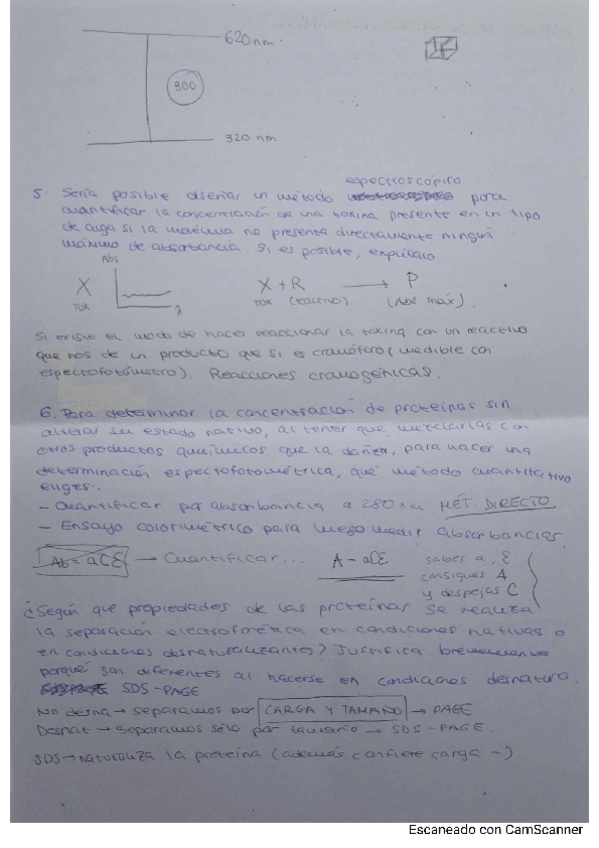 620 nm.
300
320 nm
espectroscópico
5. Sería posible diseñar un método para
cuantificar la concentración de una toxina presente en un tipo
de alga si la molécula no presenta directamente ningún
máximo de absorbancia. Si es posible, explícalo
Abs
X
TOX
λ
X + R → P
TOX (reactivo) (Abs máx).
Si existe el modo de hacer reaccionar la toxina con un reactivo
que nos de un producto que si es cromóforo (medible con
espectofotómetro). Reacciones cromogénicas.
6. Para determinar la concentración de proteínas sin
alterar su estado nativo, al tener que mezclarlas con
otros productos químicos que la dañen, para hacer una
determinación espectofotométrica, qué método cuantitativo
eliges.
- Cuantificar por absorbancia a 280 nm MÉT. DIRECTO
- Ensayo colorimétrico para luego medir absorbancias.
Ab = aCƐ → Cuantificar... A = aCƐ sabes a, Ɛ
consigues A
y despejas C
¿Según que propiedades de las proteínas se realiza
la separación electroforética en condiciones nativas o
en condiciones desnaturalizantes? Justifica brevemente
porqué son diferentes al hacerse en condiciones desnatura.
SDS-PAGE
No desna → separamos por CARGA Y TAMAÑO → PAGE
Desnat → separamos sólo por tamaño → SDS-PAGE.
SDS → naturaliza la proteína (además confiere carga -)
Escaneado con CamScanner